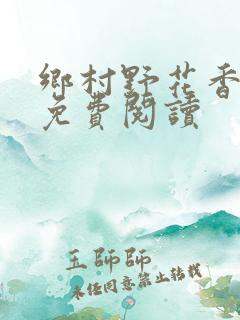 鄉村野花香
免費閱讀
王師師
未经同意禁止转载